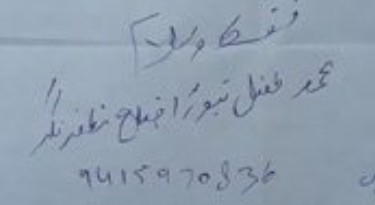 فقط والسلام
محمد طفیل تیوڑا ضلع مظفر نگر
9415970836